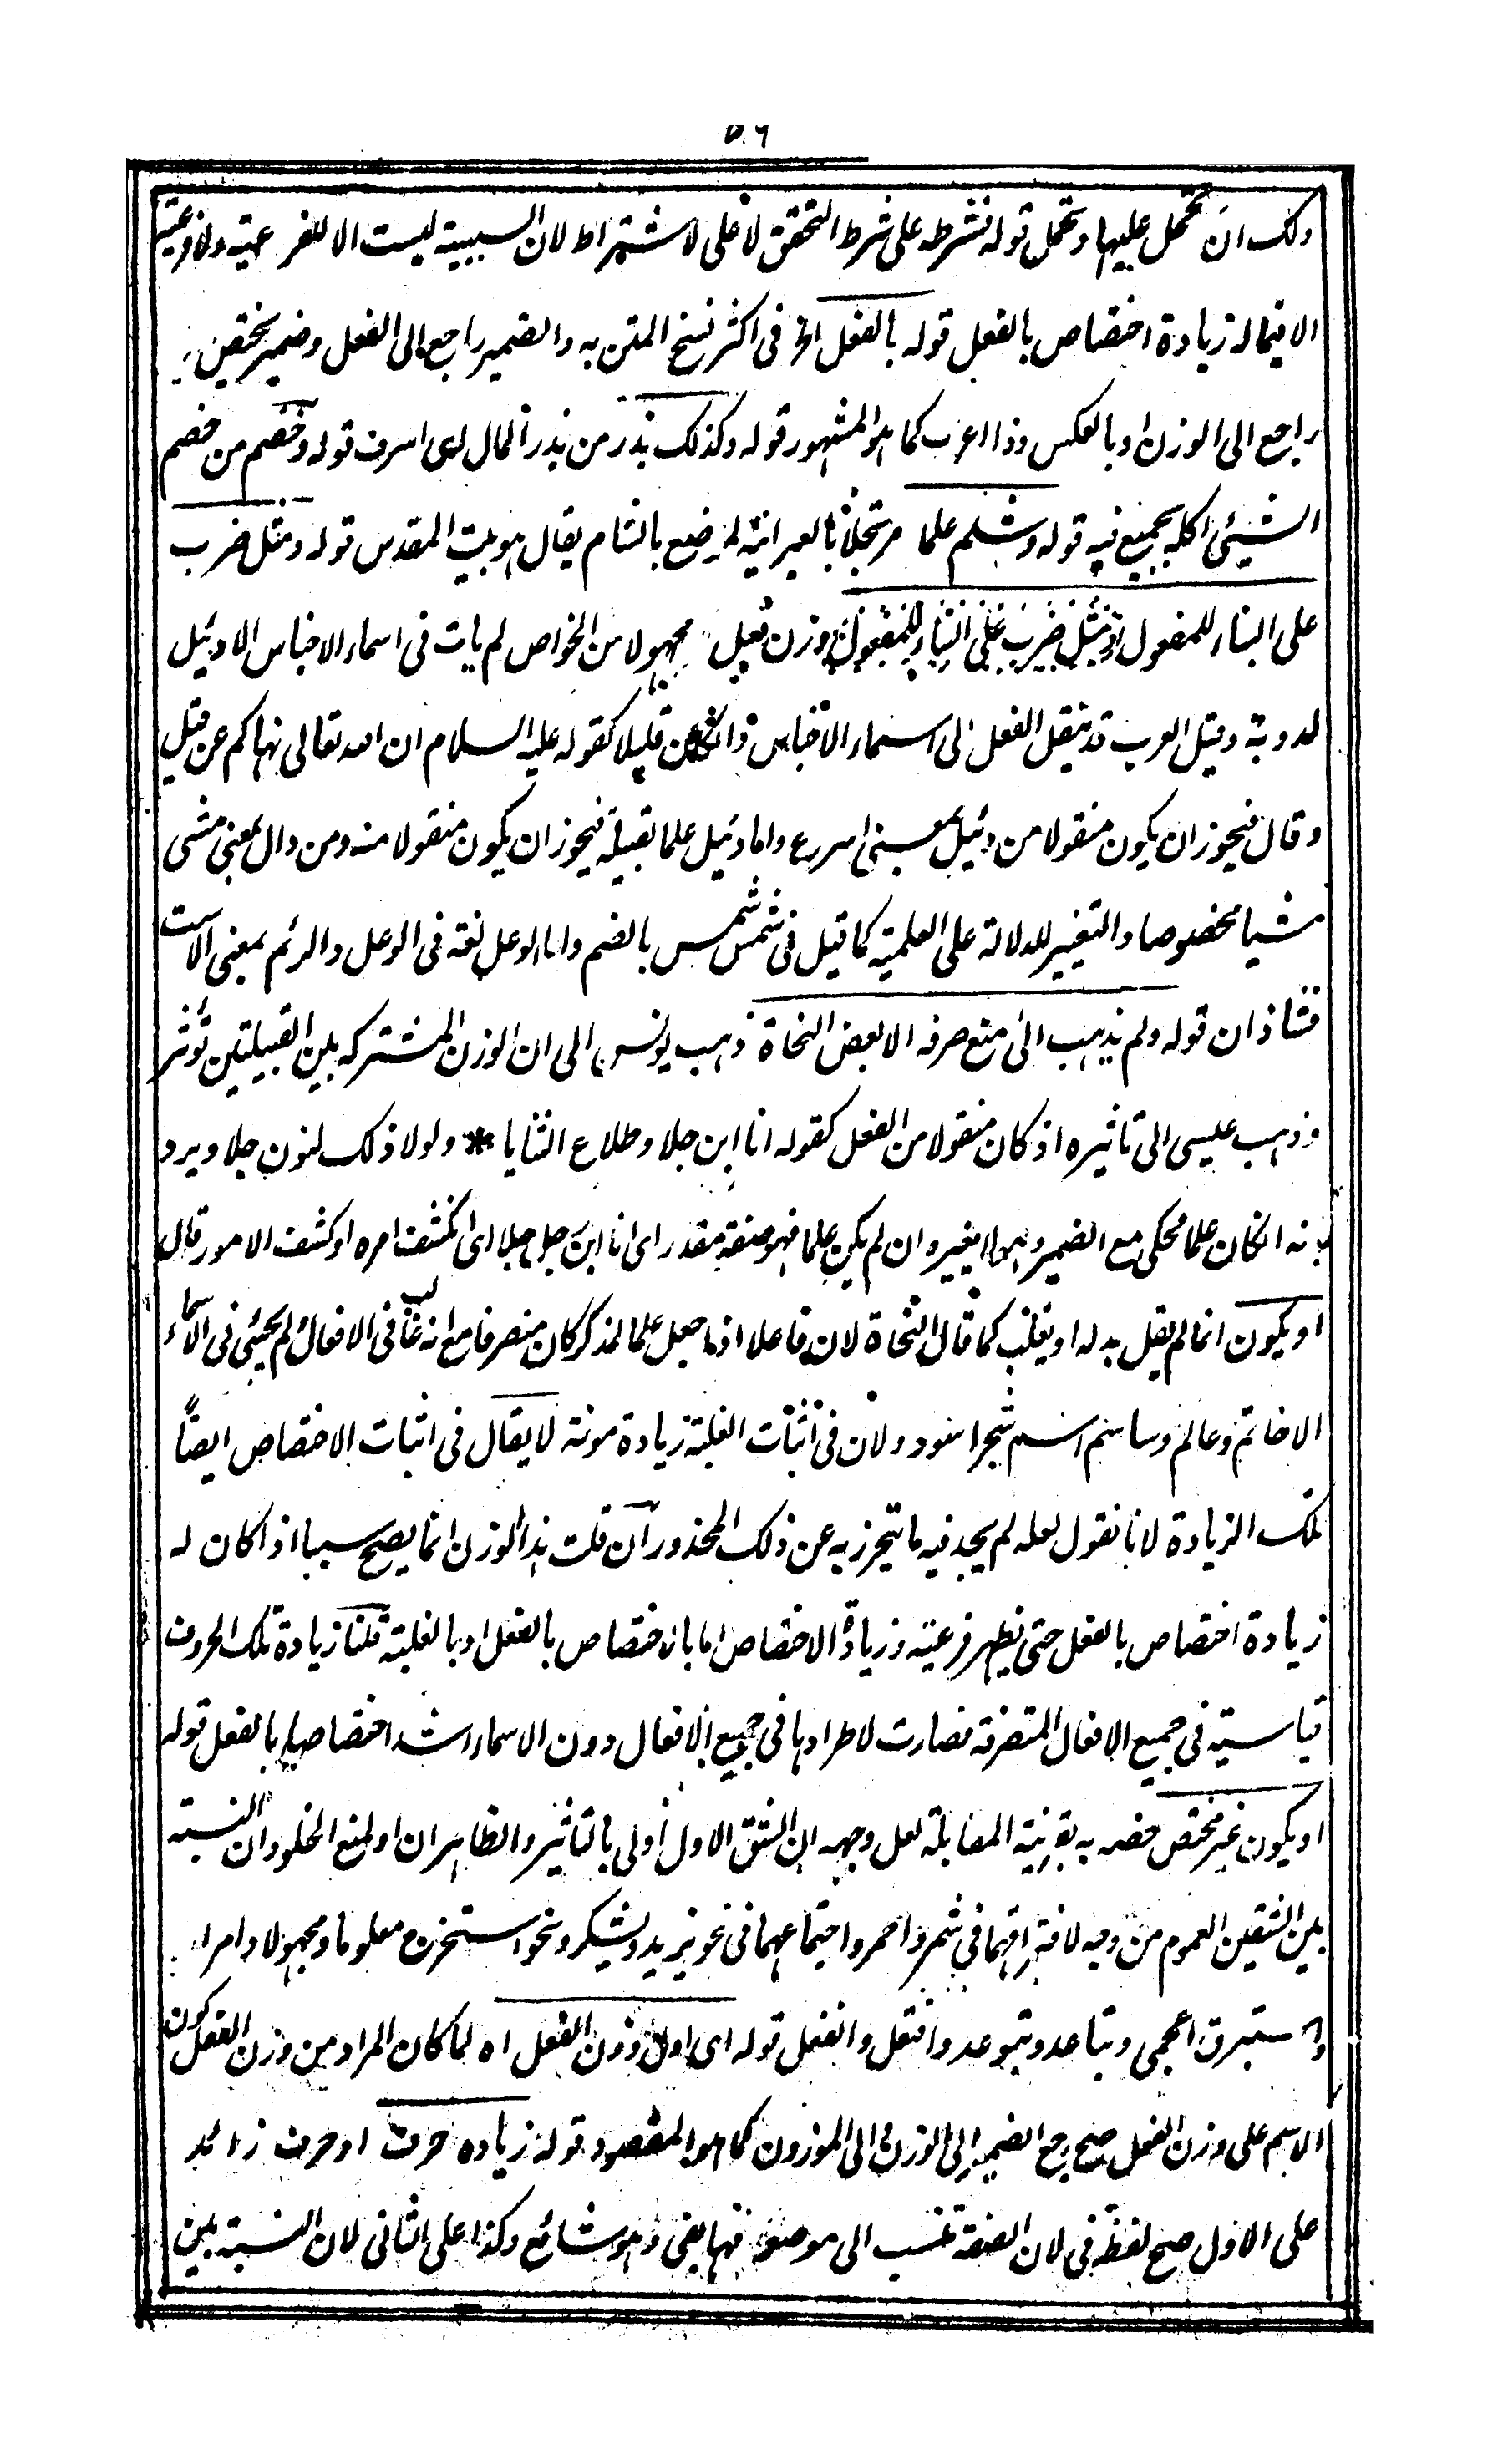 ٥٦
ولك ان تحمل عليها وتحمل قوله فشرطه على شرط التحقق لا على الاشتراط لان السببية ليست الا للفرعية ولا فرعية
الا فيما له زيادة اختصاص بالفعل قوله بالفعل الخ فى اكثر نسخ المتن به والضمير راجع الى الفعل وضمير يختص
راجع الى الوزن او بالعكس وذا اعرب كما هو المشهور قوله وكذلك بذر من بذر المال اى اسرف قوله وخضم من خضم
الشيئ اكله بجميع فيه قوله وشلم علما مرتجلا بالعبرانية لموضع بالشام يقال هو بيت المقدس قوله ومثل ضرب
على البناء للمفعول ومثل ضرب على البناء للمفعول وزن فعل مجهولا من الخواص لم يات فى اسماء الاجناس الا دئل
لدويبة وقيل العرب قد ينقل الفعل الى اسماء الاجناس وان كان قليلا كقوله عليه السلام ان الله تعالى نهاكم عن قيل
وقال فيجوز ان يكون منقولا من دئل بمعنى اسرع واما دئل علما لقبيلة فيجوز ان يكون منقولا منه ومن دال بمعنى مشى
مشيا مخصوصا والتغيير للدلالة على العلمية كما قيل فى شمس شمس بالضم واما الوعل لغة فى الوعل والرئم بمعنى الاست
فشاذان قوله ولم يذهب الى منع صرفه الا بعض النحاة ذهب يونس الى ان الوزن المشترك بين القبيلتين تؤثر
وذهب عيسى الى تاثيره اذ كان منقولا من الفعل كقوله انا ابن جلا وطلاع الثنايا * ولولا ذلك لنون جلا ويرد
بانه انكان علما فمحكى مع الضمير وهو لا يغير وان لم يكن علما فهو صفة مقدر اى انا ابن رجل جلا اى انكشف امره او كشف الامور قال
او يكون انما لم يقل بدله او يغلب كما قال النحاة لان فاعلا اذا جعل علما لمذكر كان منصرفا مع انه غالب فى الافعال لم يجيئ فى الاسماء
الا خاتم وعالم وساسم اسم شجر اسود ولان فى اثبات الغلبة زيادة مونة لا يقال فى اثبات الاختصاص ايضاً
تلك الزيادة لانا نقول لعله لم يجد فيه ما يتحرز به عن ذلك المحذور ان قلت هذا الوزن انما يصح سببا اذا كان له
زيادة اختصاص بالفعل حتى يظهر فرعيته وزيادة الاختصاص اما بالاختصاص بالفعل او بالغلبة قلنا زيادة تلك الحروف
قياسية فى جميع الافعال المتصرفة فصارت لاطرادها فى جميع الافعال دون الاسماء اشد اختصاصا بالفعل قوله
او يكون غير مختص خصه به بقرينة المقابلة لعل وجهه ان الشق الاول اولى بالتاثير والظاهر ان او لمنع الخلو وان النسبة
بين الشقين العموم من وجه لافتراقهما فى شمر واحمر واجتماعهما فى نحو يزيد ويشكر ونحو استخرج معلوما ومجهولا وامرا
واستبرق اعجمى وتباعد وتبوعد وافتعل وانفعل قوله اى اول وزن الفعل اه لما كان المراد من وزن الفعل كون
الاسم على وزن الفعل صح رجع الضمير الى الوزن الى الموزون كما هو المقصود قوله زيادة حرف او حرف زائد
على الاول صح لفظة فى لان الصفة تنسب الى موصوفها بفى وهو شائع وكذا على الثانى لان النسبة بين